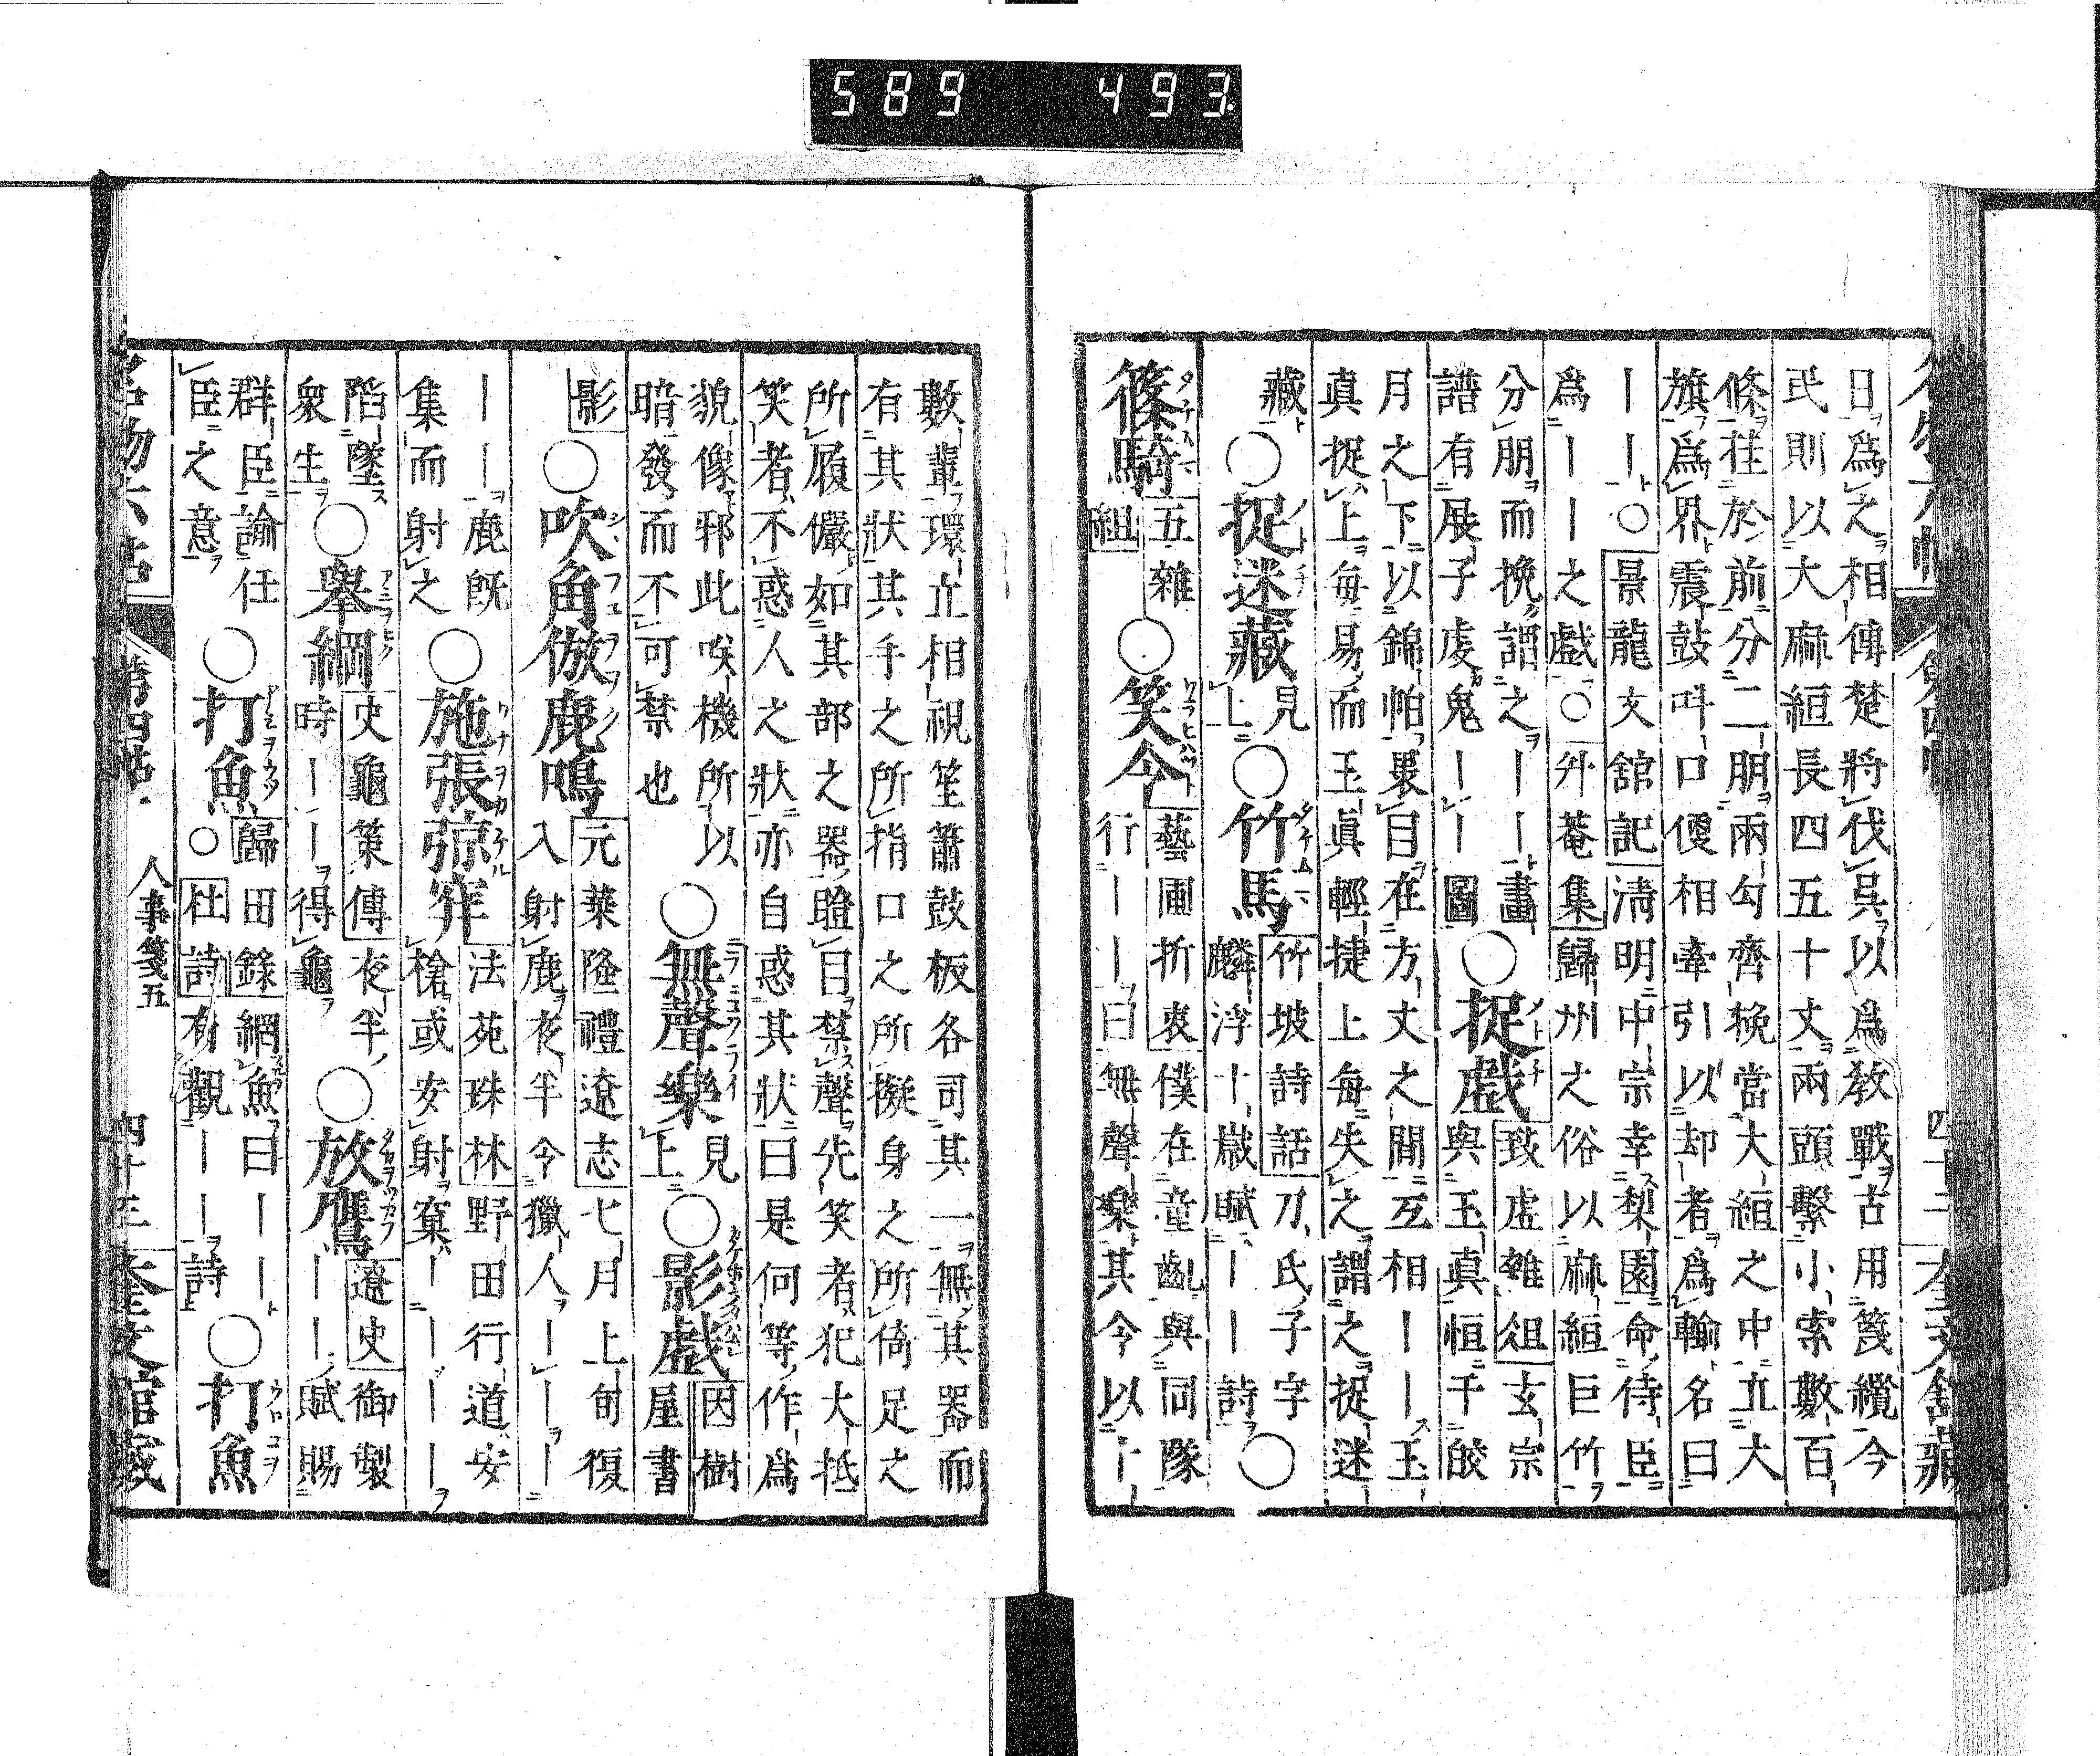 日爲之相傳楚將伐呉以爲教戰古用篾纜今
民則以大麻絙長四五十丈兩頭繫小索數百
條挂於前分二朋兩勾齊挽當大絙之中立大
旗爲界震鼓叫口便相牽引以却者爲輸名曰
丨丨○景龍文舘記清明中宗幸梨園命侍臣
爲丨丨之戲○升菴集歸州之俗以麻絙巨竹
分朋而挽謂之丨丨畫
譜有展子虔鬼丨丨圖
○捉戲
致虚雜俎玄宗
與玉真恒于皎
月之下以錦帕裹目在方丈之間互相丨丨玉
真捉上每易而玉眞輕捷上每失之謂之捉迷
藏
○捉迷藏
見
上
○竹馬
竹坡詩話刀氏子字
麟浮十歳賦丨丨詩
○
篠騎
五雜
俎
○笑令
藝圃折衷僕在童齔與同隊
行丨丨曰無聲樂其令以一
數輩環立相視笙簫鼓板各司其一無其器而
有其狀其手之所指口之所擬身之所倚足之
所履儼如其部之器瞪目禁聲先笑者犯大抵
笑者不惑人之狀亦自惑其狀曰是何等作爲
貌像邪此唉機所以
暗發而不可禁也
○無聲樂
見
上
○影戲
因樹
屋書
影
○吹角倣鹿鳴
元葉隆禮遼志七月上旬復
入射鹿夜半令獵人丨丨丨
丨丨鹿既
集而射之
○施張弶穽
法苑珠林野田行道安
槍或安射窠丨丨丨丨
陷墜
衆生
○舉網
史龜策傳夜半
時丨丨得龜
○放鷹
遼史御製
丨丨賦賜
群臣諭任
臣之意
○打魚
歸田錄網魚曰丨丨
○杜詩有觀丨丨詩
○打魚
名物六帖 第四帖 人事箋五 四十三 奎文館藏
589 493